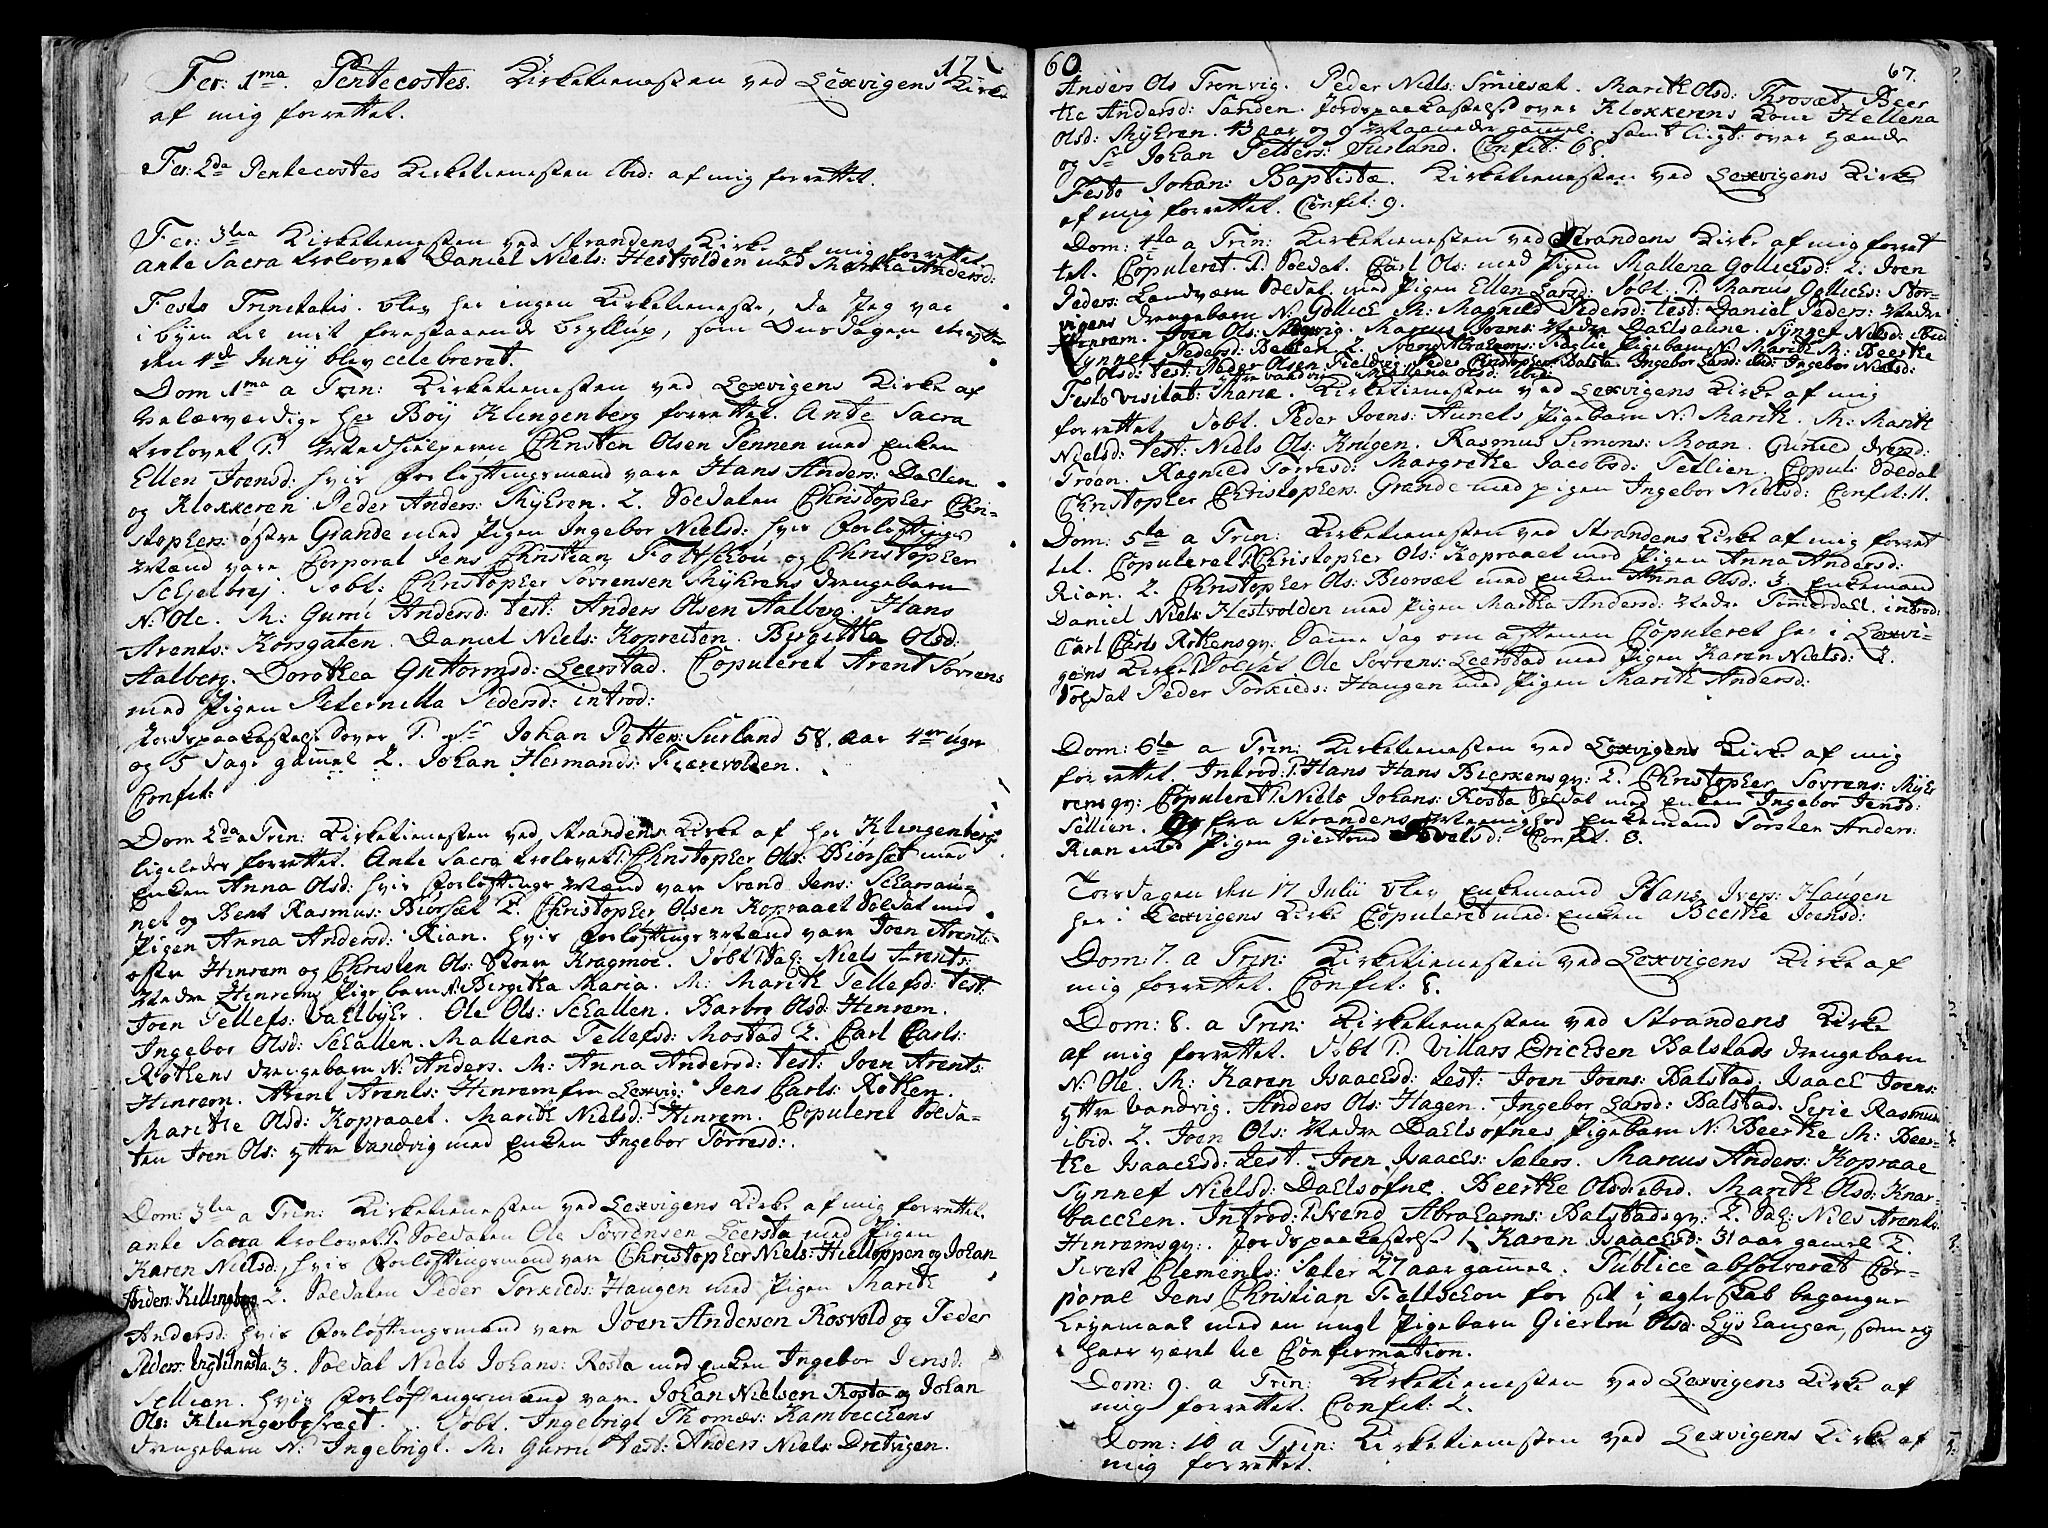 17
Fer: 1ma. Pentecostes. Kirketienesten ved Lexvigens Kirke
af mig forrettet.
Fer: 2da Pentecostes Kirketienesten ibid: af mig forrettet.
Fer: 3tia Kirketienesten ved Strandens Kirke af mig forrettet.
ante Sacra trolovet Daniel Niels: Hestvolden med Martha Andersd:
Festo Trinitatis. blev her ingen Kirketieneste, da Jeg var
i byen til mit forestaaende Bryllup, som Onsdagen
den 4de Junij blev celebreret.
Dom 1ma a Trin: Kirketienesten ved Lexvigens Kirke af
velærværdige hr Boÿ Klingenberg forrettet. Ante Sacra
trolovet 1. Medhielperen Christen Olsen Pennen med Enken
Ellen Irensd: hvis Forlovtningsmænd vare Hans Anders: Daelen
og Klokkeren Peder Anders: Myhren. 2. Soldaten Christopher Chri-
stophers: østre Grande med Pigen Ingebor Nielsd: hvis Forlovtnings
Mænd vare Corporal Jens Christian Foltschou og Christopher
Schielbrej. Døbt: Christopher Sørrensen Myhrens drengebarn
N: Ole. M: Gurru Andersd: test: Anders Olsen Aalberg. Hans
Arents: Korsgaten. Daniel Niels: Kopreiten. Birgitha Olsd:
Aalberg. Dorothea Guttormsd: Leerstad. Copuleret Arent Sørrens
med Pigen Peternilla Pedersd: introd:
Jordspaakastelse over 1. Sr Johan Petter: Surland 58. aar 4re uger
og 5 dage gamel 2. Johan Hermands: Fiærevolden.
Confit:
Dom 2da a Trin: Kirketienesten ved Strandens Kirke af hr Klingenberg
ligeledes forrettet. Ante Sacra trolovet 1. Christopher Ols: Biørsæt med
Enken Anna Olsd: hvis Forlovtnings Mænd vare Svend Jens:
net og Bent Rasmus: Biørsæt 2. Christopher Olsen Kopraaet Soldat med
Pigen Anna Andersd: Rian. hvis Forlovtnings Mænd vare Joen Arents:
østre Hinrem og Christen Ols: Store Kragmoe. Døbt 1. Sal: Niels Arents:
Nedre Hinrems Pigebarn N: Birgitha Maria. M: Marith Tellefsd: test:
Joen Tellefs: Vaelbÿer. Ole Ols: Schallen. Barbro Olsd: Hinrem.
Ingebor Olsd: Schallen. Mallena Tellefsd: Mostad 2. Carl Carls:
Rothens drengebarn N: Anders. M: Anna Andersd: test: Joen Arents:
Hinrem. Arent Arents: Hinrem fra Lexvig: Jens Carls: Rothen.
Marithe Olsd: Kopraaet. Marith Nielsd: Hinrem. Copuleret Solda-
ten Joen Ols: ÿttre Vandvig med Enken Ingebor Torresd:.
Dom: 3tia a Trin: Kirketienesten ved Lexvigens Kirke af mig forrettet.
ante Sacra trolovet 1. Soldaten Ole Sørrensen Leersta med Pigen
Karen Nielsd: hvis Forlovtningsmænd vare Christopher Niels: Hielloppen og Johan
Anden: Killingberg 2. Soldaten Peder Torkieds: Haugen med Pigen Marith
Andersd: hvis Forlovtningsmænd vare Joen Andersen Rosvold og Peder
Peders: 3. Soldat Niels Johans: Rosta med Enken Ingebor Jensd:
Sellien. hvis Forlovtningsmænd vare Johan Nielsen Rosta og Johan
Ols: . Døbt. Ingebrigt Thomæs: Kambecchens
drengebarn N: Ingebrigt. M: Gurru test: Anders Niels: Dretvigen.
60.
67.
Anders Ols Tronvig. Peder Niels: Smiesæt. Marith Olsd: Throsæt. Beer
the Andersd: Sanden. Jordspaakastelse over Klokkerens Kone Hellena
Olsd: Myhren. 43 aar og 9 Maaneder gamel. samt ligt: over
og Sr Johan Petters: Surland. Confit: 68.
Festo Johan: Baptistæ. Kirketienesten ved Lexvigens Kirke
af mig forrettet. Confit: 9.
Dom: 4ta a Trin: Kirketienesten ved Strandens Kirke af mig forret
tet. Copuleret. 1. Soldat. Carl Ols: med Pigen Mallena Gollichsd: 2. Joen
Peders: Landværn Soldat. med Pigen Ellen Larsd: Døbt. 1. Marcus Gollichs: Stor-
vigens drengebarn N: Gollich M: Magnild Pedersd: test: Daniel Peders: Nedre
Hinrem. Joen Ols: Marcus Joens: Nedre Daelsaune. Synnef Nielsd: ibid
Synnef Pedersd: 2. Svend Abrahams: Pigebarn N: Marith M: Beerthe
Olsd: test: Peder Olsen Peder Christophers: Balsta. Ingebor Larsd: ibid: Ingebor Nielsd:
ÿttre Vandvig Mallena Olsd: ibid:
Festo Visitat: Mariæ. Kirketienesten ved Lexvigens Kirke af mig
forrettet. Døbt. Peder Joens: Aunets Pigebarn N: Marith. M: Marith
Nielsd: test: Niels Ols: Krigen. Rasmus Simons: Moan. Gunild
Troan. Ragnild Torresd: Margrethe Jacobsd: Tetlien. Copul: Soldat
Christopher Christophers: Grande med pigen Ingebor Nielsd: Confit: 11.
Dom: 5ta a Trin: Kirketienesten ved Strandens Kirke af mig forret
tet. Copuleret 1. Christopher Ols: Kopraaet med Pigen Anna Andersd:
Rian. 2. Christopher Ols: Biørsæt med Enken Anna Olsd: 3. Enkemand
Daniel Niels: Hestvolden med Pigen Martha Andersd: Nedre Tømmerdael. introd:
Carl Carls Rothensqv: Samme dag om aftenen Copuleret her i Lexvi-
gens Kirke 1. Soldat Ole Sørrens: Leerstad med Pigen Karen Nielsd: 2.
Soldat Peder Torkieds: Haugen med Pigen Marith Andersd:
Dom: 6te a Trin: Kirketienesten ved Lexvigens Kirke af mig
forrettet. Introd: 1. Hans Hans Bierkensqv: 2. Christopher Sørrens: Mÿh
rensqv: Copuleret 1. Niels Johans: Rosta Soldat med Enken Ingebor Jensd:
Sellien. Og fra Strandens Meenighed Enkemand Torsten Anders:
Rian med Pigen Giertrud Confit. 3.
Torsdagen den 17 Julii blev Enkemand Hans Ivers: Haugen
her i Lexvigens Kirke Copuleret med Enken Beerthe Joensd:
Dom: 7. a Trin: Kirketienesten ved Lexvigens Kirke af
mig forrettet. Confit: 8.
Dom: 8. a Trin: Kirketienesten ved Strandens Kirke
af mig forrettet. Døbt 1. Villars Erichsen Balstads drengebarn
N: Ole. M: Karen Isaachsd: test: Joen Joens: Balstad, Isaach Joens:
ÿttre Vandvig. Anders Ols: Hagen. Ingebor Larsd: Balstad. Sirie Rasmus
ibid. 2. Joen Ols: Nedre Daelsøfnes Pigebarn N: Beerthe M: Beer-
the Isaachsd: test. Joen Isaachs: Sæters. Marcus Anders: Kopraae
Synnef Nielsd: Daelsøfne. Beerthe Olsd: ibid. Marith Olsd: Knar-
bacchen. Introd: 1. Svend Abrahams: Balstadsqv: 2. Sal: Niels Arents
Hinremsqv:. Jordspaakastelse 1. Karen Isaachsd: 31 aar gamel 2.
Sivert Clements: Sæter 27 aar gamel. Publice absolveret Cor-
poral Jens Christian Foltschou for sit i ægteskab begangne
Leyemaal med en ungt Pigebarn Giertru Olsd: Lyshaugen, som eÿ
haer været til Confirmation.
Dom: 9. a Trin: Kirketienesten ved Lexvigens Kirke af
mig forrettet. Confit: 2.
Dom: 10 a Trin: Kirketienesten ved Lexvigens Kirke af
mig forrettet.